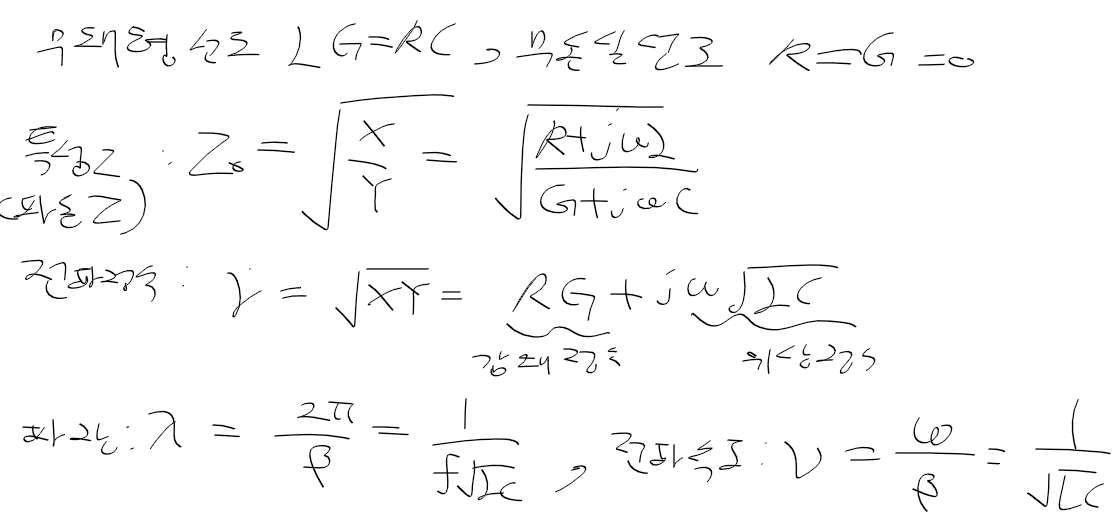 무왜형 선로 LG=RC, 무손실 선로 R=G=0
특성Z : Z₀ = √(X/Y) = √((R+jωL)/(G+jωC))
(파동Z)
전파정수 : γ = √(XY) = RG + jω√(LC)
감쇄정수 위상정수
파장: λ = 2π/β = 1/(f√(LC)), 전파속도 : v = ω/β = 1/√(LC)